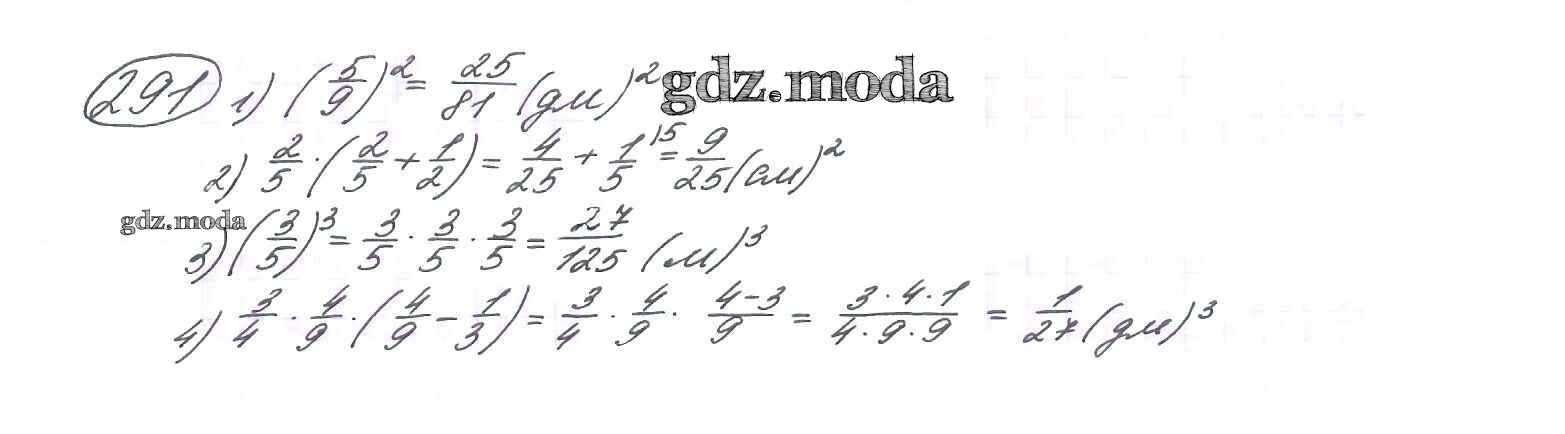 291 1) (5/9)² = 25/81 (дм)² gdz.moda
2) 2/5 · (2/5 + 1/2) = 4/25 + 1/5 ⁽⁵ = 9/25 (см)²
gdz.moda
3) (3/5)³ = 3/5 · 3/5 · 3/5 = 27/125 (м)³
4) 3/4 · 4/9 · (4/9 - 1/3) = 3/4 · 4/9 · (4-3)/9 = (3·4·1)/(4·9·9) = 1/27 (дм)³